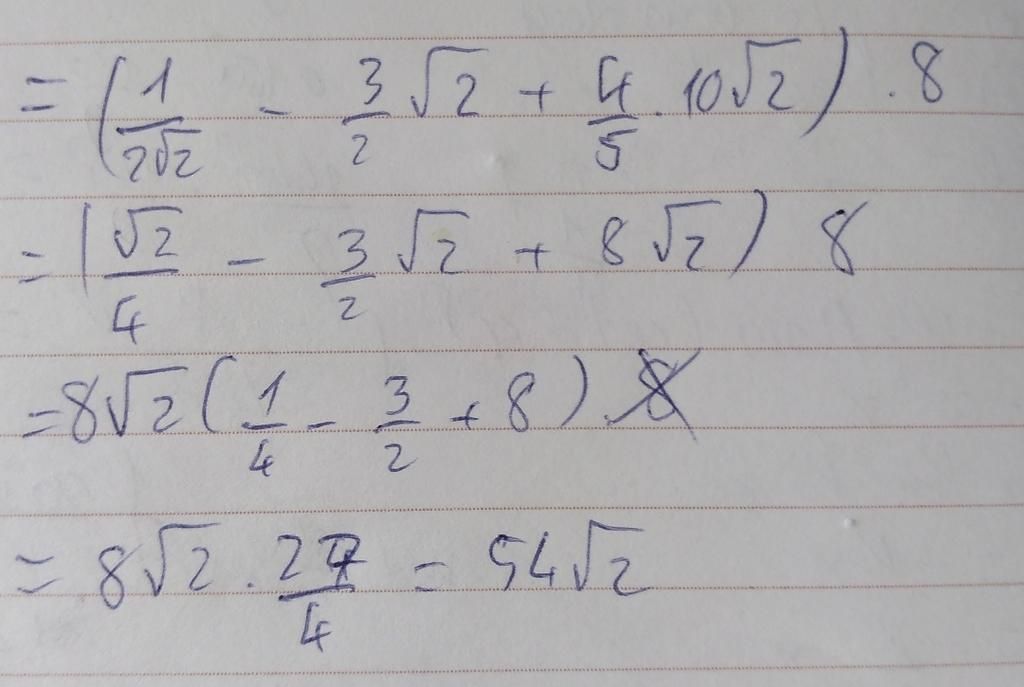 = (1/2√2 - 3/2 √2 + 4/5 . 10√2) . 8
= (√2/4 - 3/2 √2 + 8√2) 8
= 8√2 (1/4 - 3/2 + 8)
= 8√2 . 27/4 = 54√2